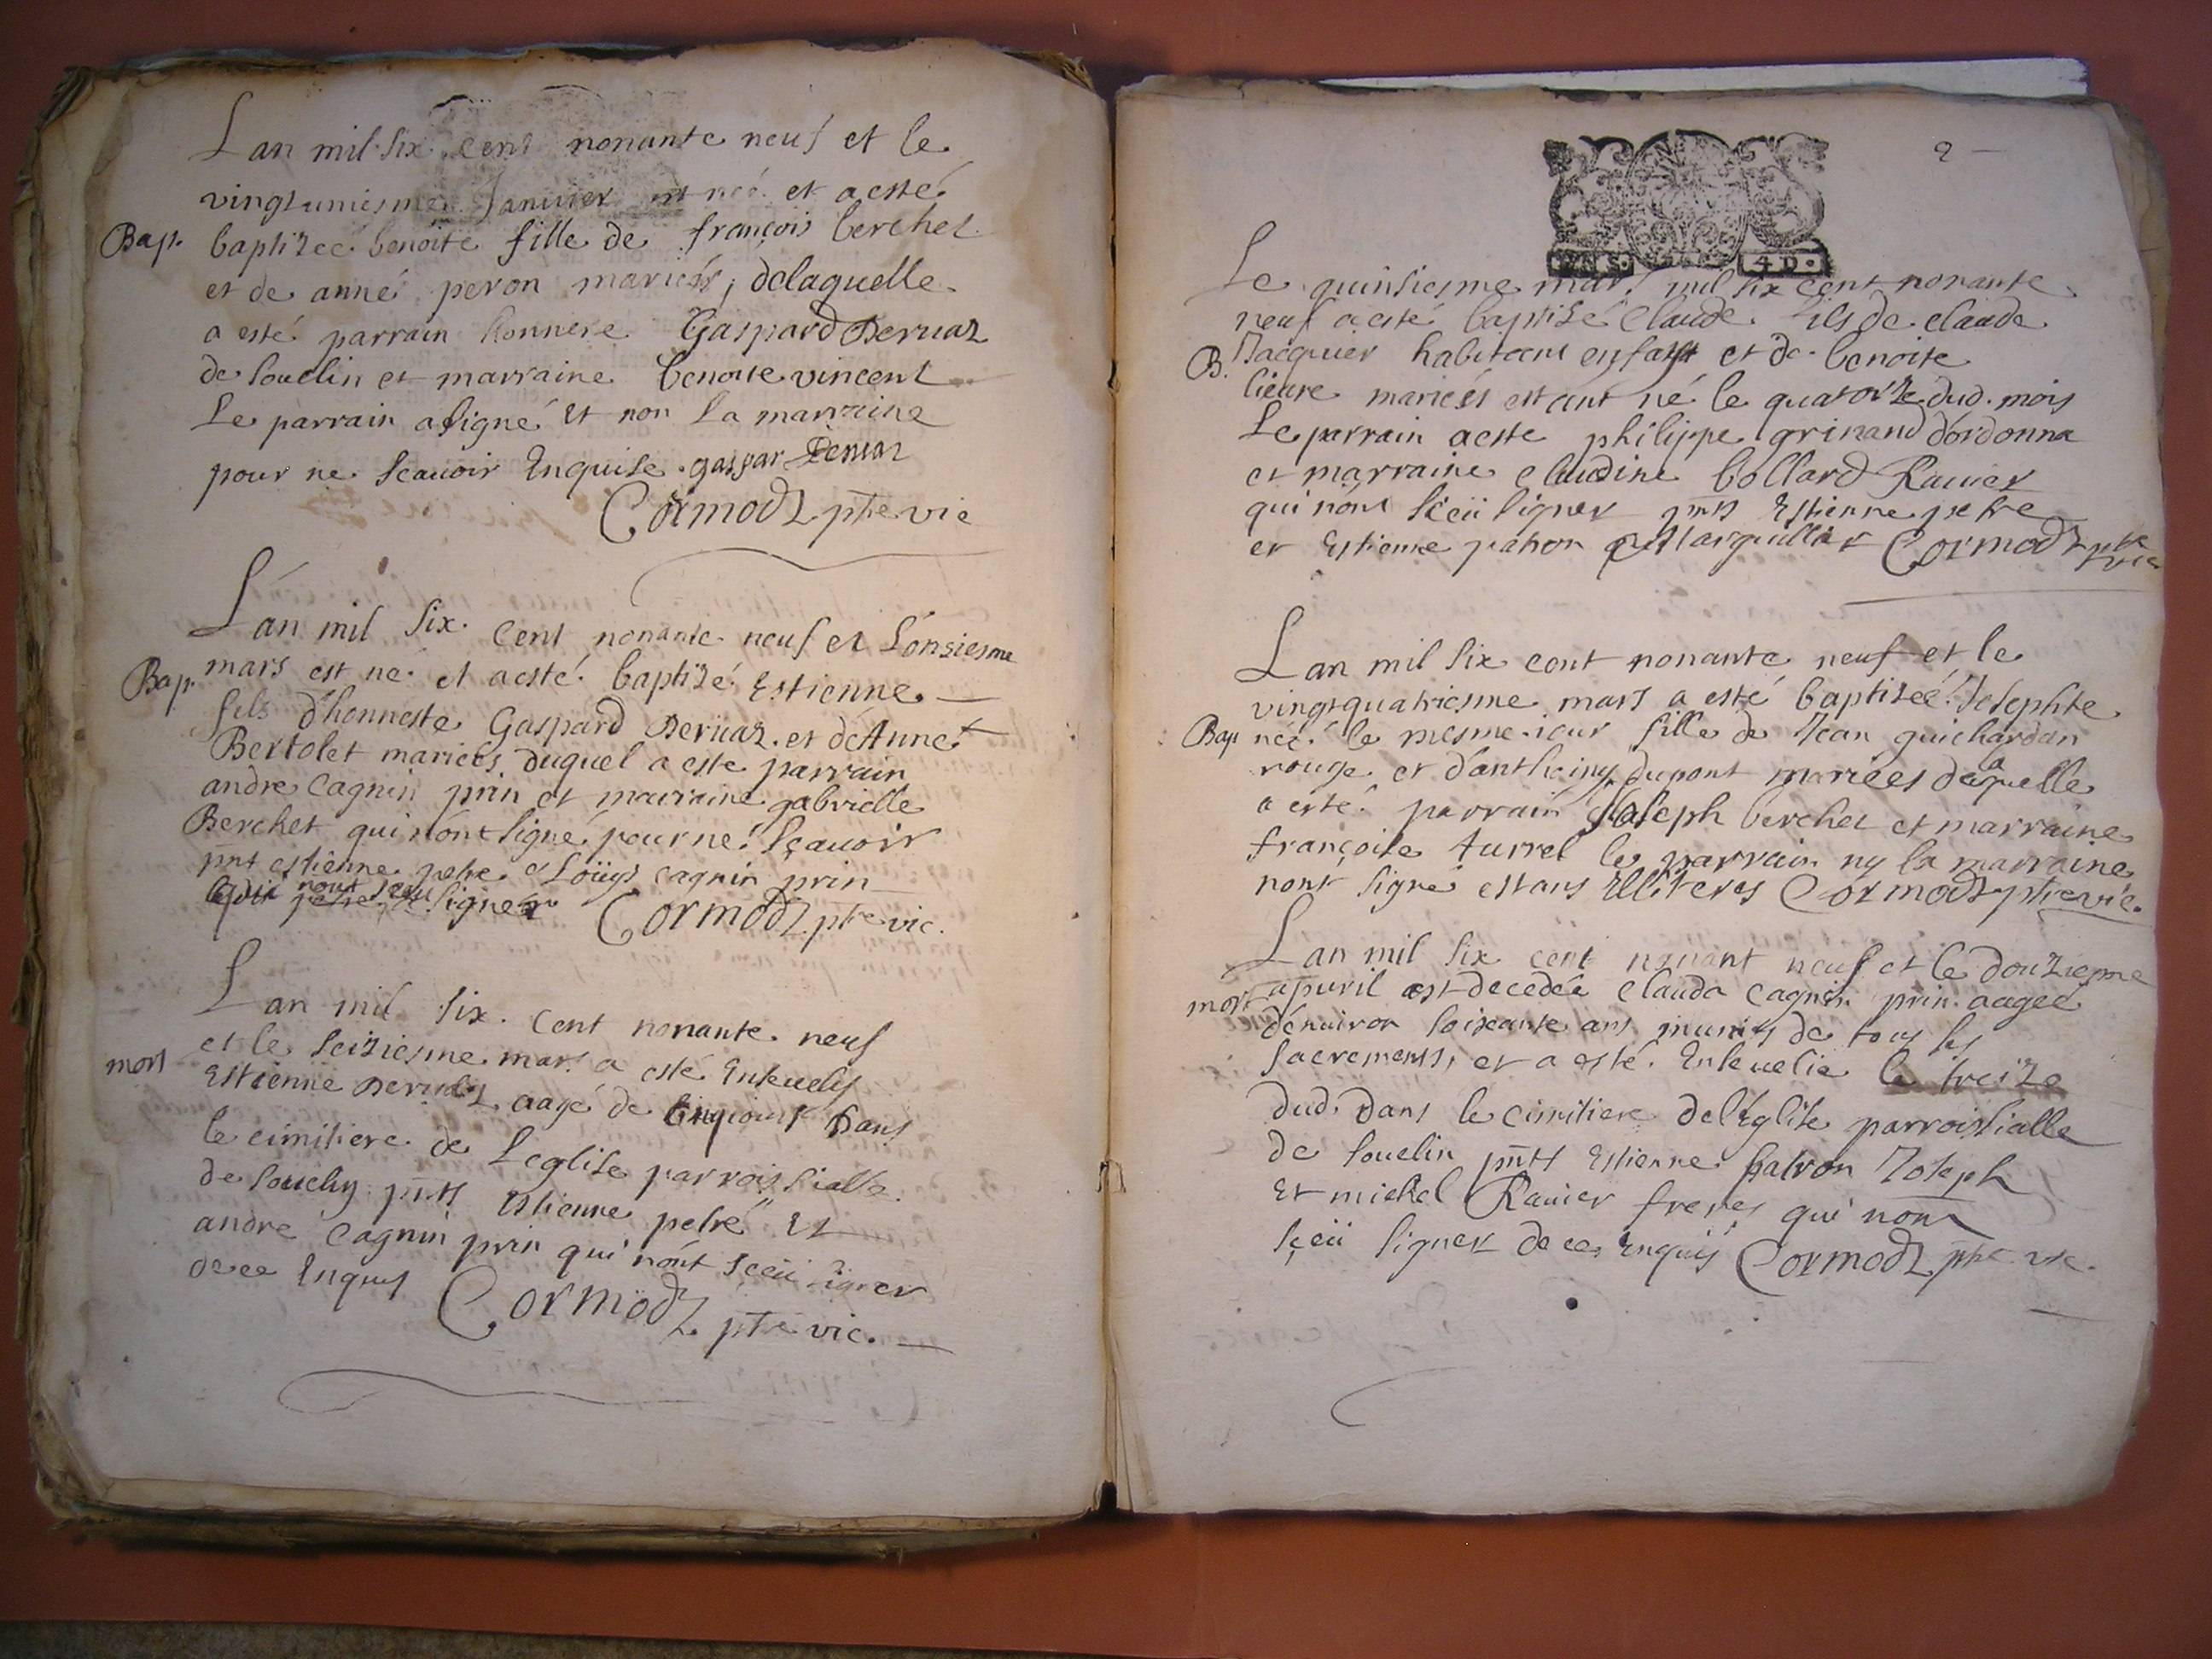 Lan mil six cent nonante neuf et le
vingtuniesme Januier est née et a esté
Bap. baptizée benoite fille de françois berchet
et de anne peron mariés, delaquelle
a esté parrain honneste Gaspard Deruaz
de souclin et marraine benoite vincent
Le parrain a signé et non la marraine
pour ne scauoir Enquise. gaspar Deruaz
Cormodz ptre vic
Lan mil six cent nonante neuf et Lonsiesme
Bap. mars est né et a esté baptizé Estienne
fils d'honneste Gaspard Deruaz et d'Anne
Bertolet mariés duquel a este parrain
andre Cagnin prin et marraine gabrielle
Berchet qui n'ont signé pour ne sçauoir
pnt estienne petre et Loüys cagnin prin
qui nont sceu signer Cormodz ptre vic.
Lan mil six cent nonante neuf
mort et le seiziesme mars a esté Enseuely
Estienne Deruaz aagé de cinq jours Dans
le cimitiere de Leglise parroissialle
de souclin pnts Estienne petre et
andre Cagnin prin qui n'ont sceu signer
de ce Enquis Cormodz ptre vic.
2
4 D.
Le quinsiesme mars mil six cent nonante
neuf a esté baptizé Claude fils de claude
B. Jacquier habitant et de benoite
lieure mariés estant né le quatorze dud. mois
Le parrain a este philippe grinand d'ordonna
et marraine claudine bollard Rauier
qui n'ont sceu signer pnts Estienne petre
et Estienne patron Marguillier Cormodz ptre vic
Lan mil six cent nonante neuf et le
vingtquatriesme mars a esté baptizée Josephte
Bap née le mesme iour fille de Jean guichardan
rouge et d'anthoine dupont mariées delaquelle
a esté parrain Joseph berchet et marraine
françoise turrel le parrain ny la marraine
nont signé estans Illiteres Cormodz ptre vic.
Lan mil six cent nonant neuf et le douziesme
mort apuril est decedée Clauda Cagnin prin aagée
d'enuiron soixante ans munis de tous les
sacrements, et a esté Enseuelie le treize
dud. dans le cimitiere de l'Eglise parroissialle
de souclin pnts Estienne patron Joseph
Et michel Rauier freres qui nont
sçeü signer de ce Enquis Cormodz ptre vic.